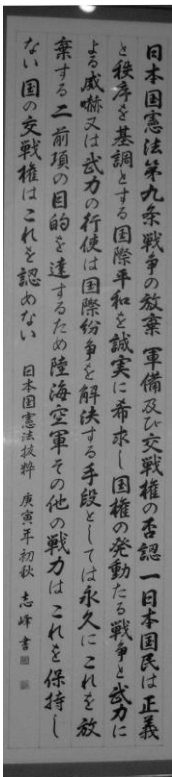 日本国憲法第九条戦争の放棄 軍備及び交戦権の否認 一日本国民は正義
と秩序を基調とする国際平和を誠実に希求し国権の発動たる戦争と武力に
よる威嚇又は武力の行使は国際紛争を解決する手段としては永久にこれを放
棄する 二前項の目的を達するため陸海空軍その他の戦力はこれを保持し
ない 国の交戦権はこれを認めない 日本国憲法抜粋 庚寅年初秋 志峰書